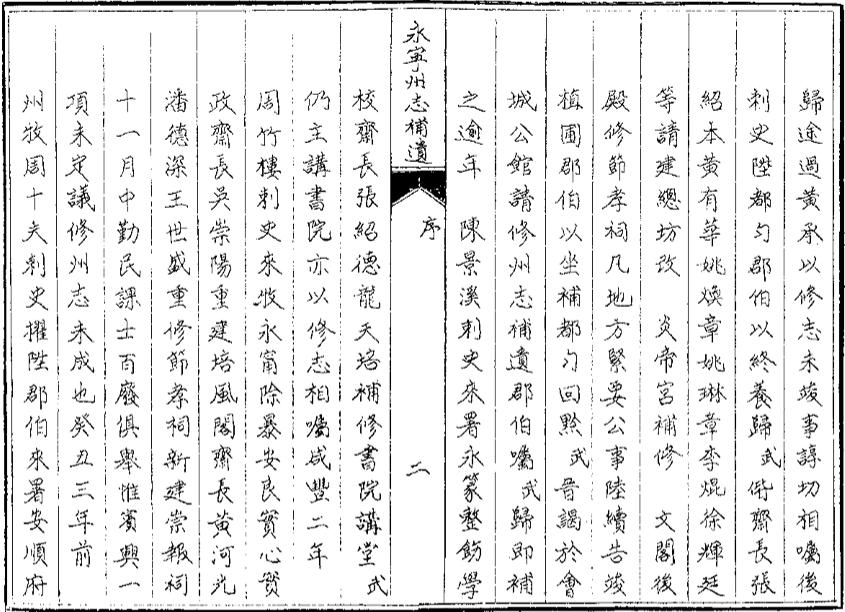 歸途過黃承以修志未竣事諄切相囑後
刺史陞都勻郡伯以終養歸武偕齋長張
紹本黃有華姚煥章姚琳章李焜徐輝廷
等請建總坊改 炎帝宮補修 文閣後
殿修節孝祠凡地方緊要公事陸續告竣
植圃郡伯以坐補都勻回黔武晉謁於會
城公館請修州志補遺郡伯囑武歸即補
之逾年 陳景溪刺史來署永篆整飭學
永寧州志補遺
序
二
校齋長張紹德龍天培補修書院講堂武
仍主講書院亦以修志相囑咸豐二年
周竹樓刺史來牧永甯除暴安良實心實
政齋長吳崇陽重建培風閣齋長黃河光
潘德深王世盛重修節孝祠新建崇報祠
十一月中勤民課士百廢俱舉惟賓興一
項未定議修州志未成也癸丑三年前
州牧周十夫刺史擢陞郡伯來署安順府